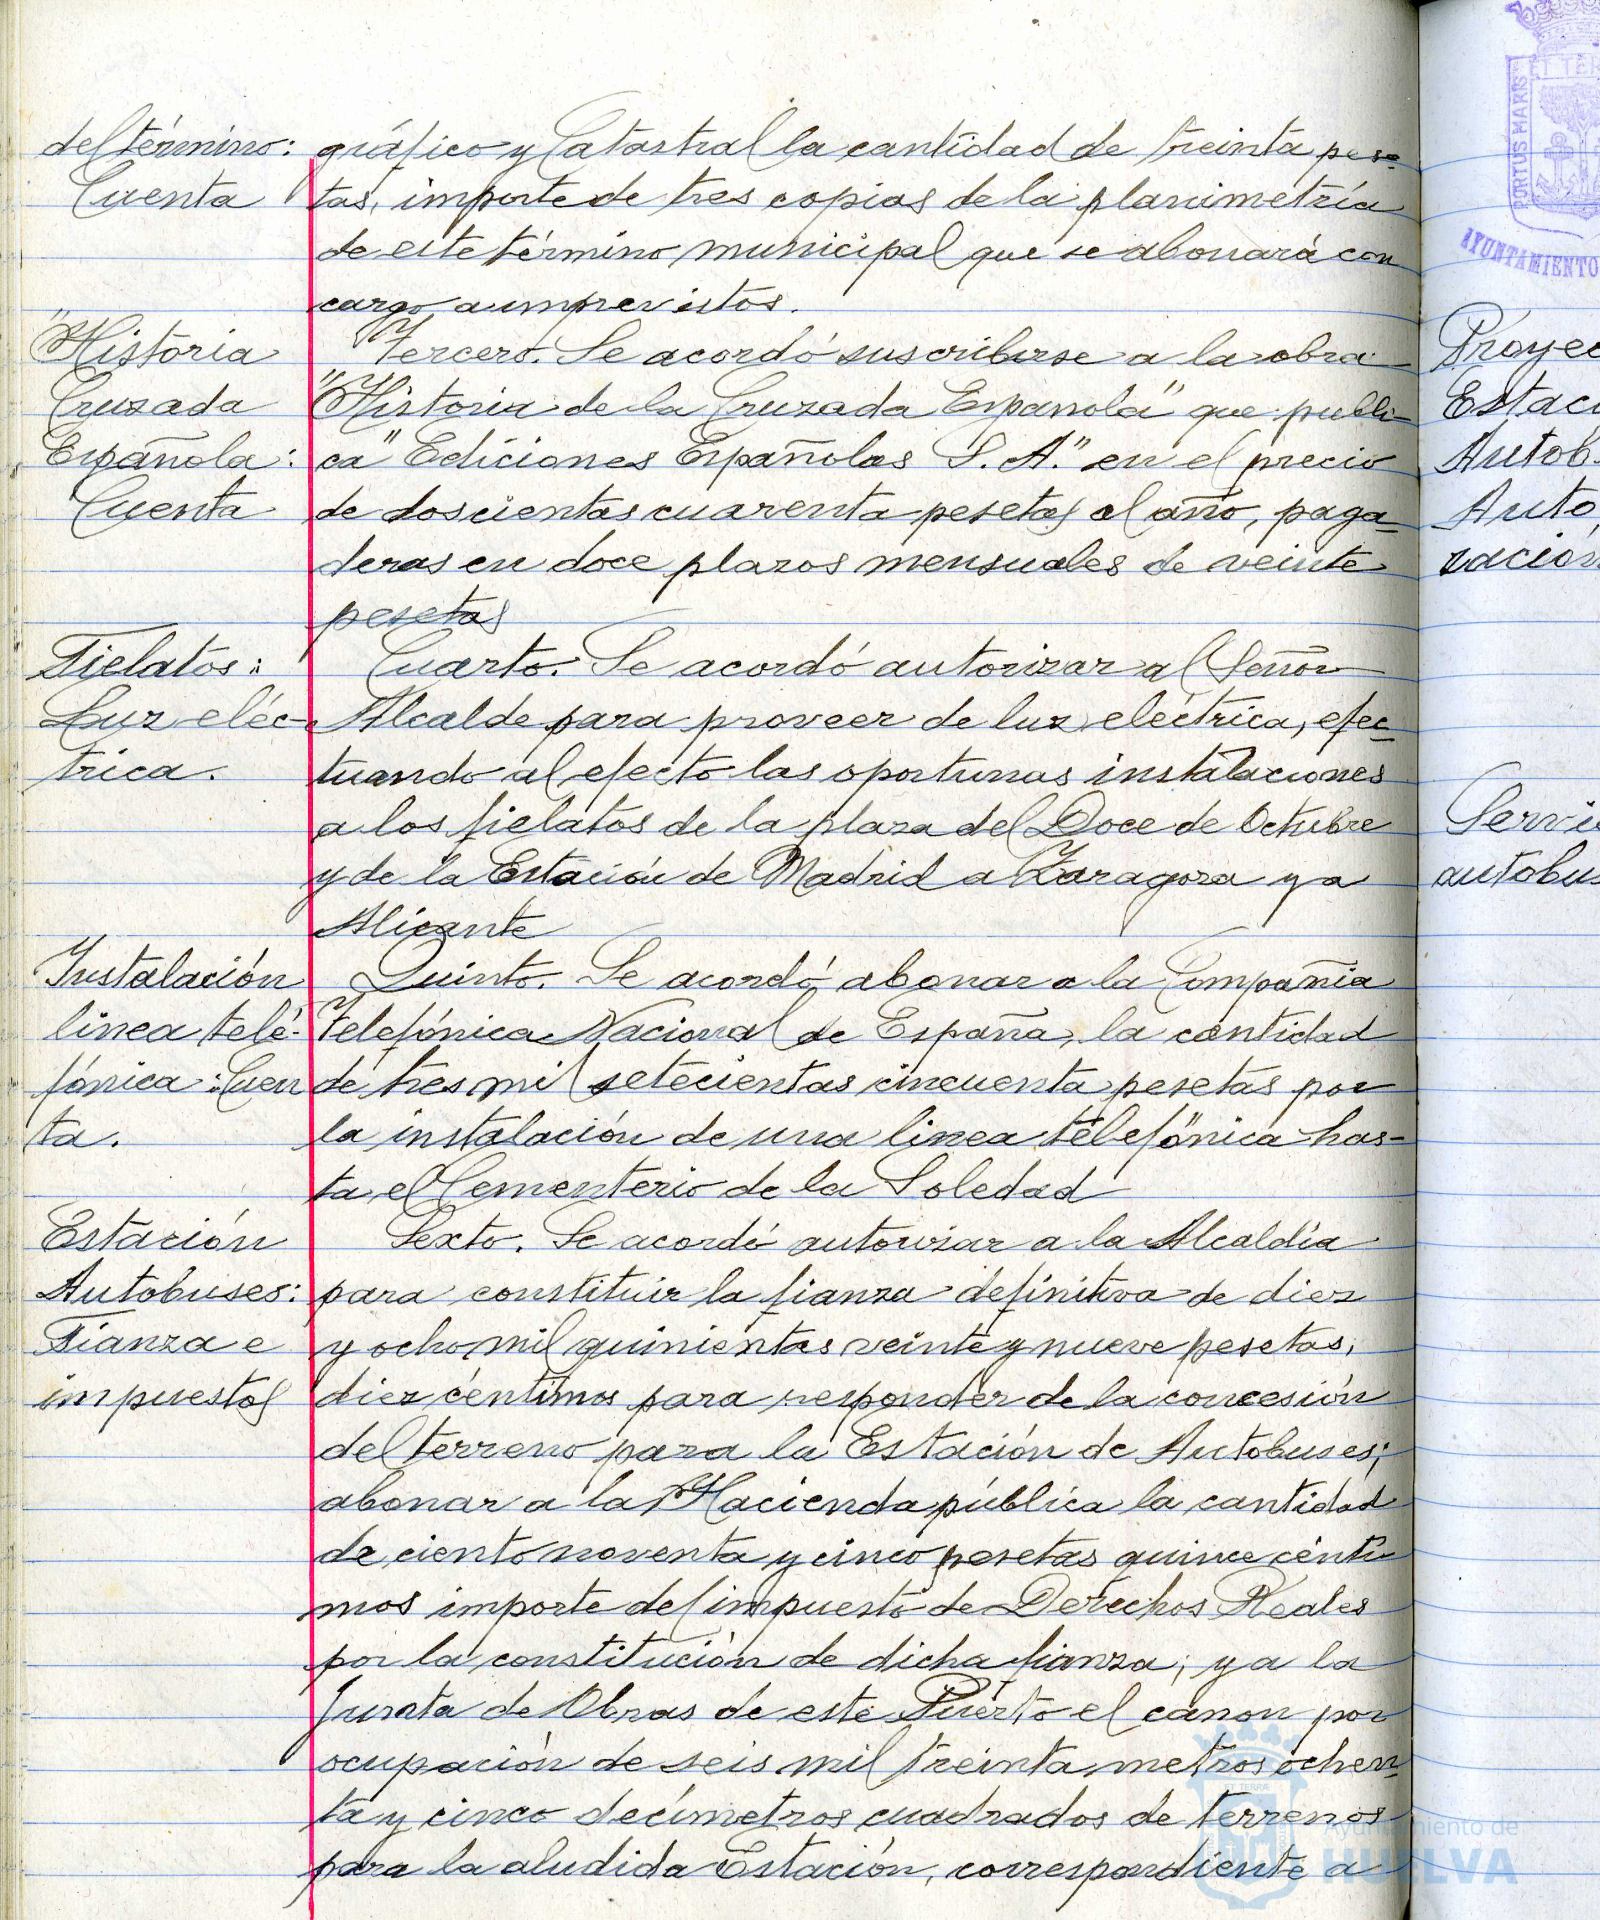 del término:
Cuenta
gráfico y Catastral la cantidad de treinta pese-
tas, importe de tres copias de la planimetría
de este término municipal que se abonará con
cargo a imprevistos.
"Historia
Cruzada
Española:
Cuenta
Tercero. Se acordó suscribirse a la obra
"Historia de la Cruzada Española" que publi-
ca "Ediciones Españolas S. A." en el precio
de doscientas cuarenta pesetas al año, paga-
deras en doce plazos mensuales de veinte
pesetas
Fielatos:
Luz eléc-
trica.
Cuarto. Se acordó autorizar al Señor
Alcalde para proveer de luz eléctrica, efec-
tuando al efecto las oportunas instalaciones
a los fielatos de la plaza del Doce de Octubre
y de la Estación de Madrid a Zaragoza y a
Alicante
Instalación
linea tele-
fónica: Cuen
ta.
Quinto. Se acordó abonar a la Compañia
Telefónica Nacional de España, la cantidad
de tres mil setecientas cincuenta pesetas por
la instalación de una linea telefónica has-
ta el Cementerio de la Soledad
Estación
Autobuses:
Fianza e
impuestos
Sexto. Se acordó autorizar a la Alcaldía
para constituir la fianza definitiva de diez
y ocho mil quinientas veinte y nueve pesetas,
diez céntimos para responder de la concesión
del terreno para la Estación de Autobuses;
abonar a la Hacienda pública la cantidad
de ciento noventa y cinco pesetas quince cénti-
mos importe del impuesto de Derechos Reales
por la constitución de dicha fianza; y a la
Junta de Obras de este Puerto el canon por
ocupación de seis mil treinta metros ochen-
ta y cinco decímetros cuadrados de terrenos
para la aludida Estación, correspondiente a
PORTUS MARIS ET TERR
AYUNTAMIENTO
Proyec
Estaci
Autob.
Auto
zación
Servi
autobus
Ayuntamiento de
HUELVA